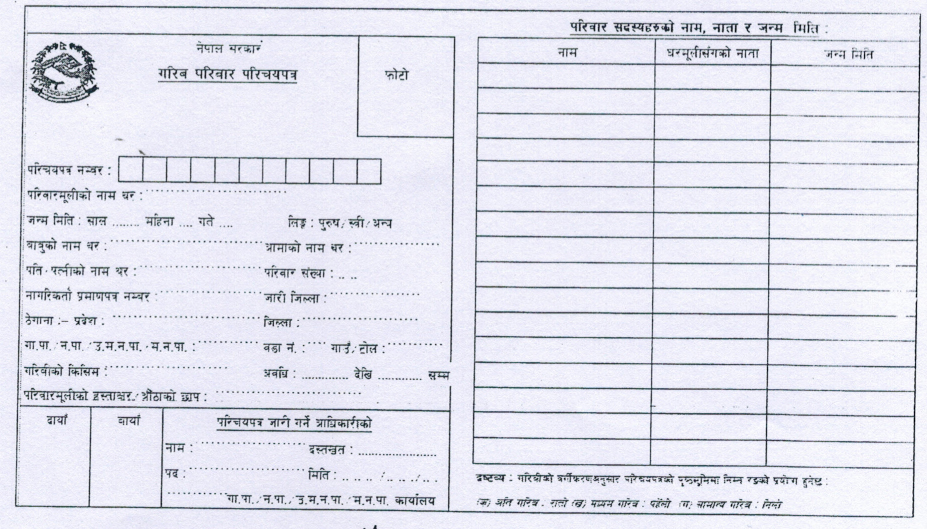 नेपाल सरकार
गरिब परिवार परिचयपत्र
फोटो
परिचयपत्र नम्बर :
परिवारमूलीको नाम थर :
जन्म मिति : साल ........ महिना .... गते .... लिङ्ग : पुरुष/स्त्री/अन्य
बाबुको नाम थर : आमाको नाम थर :
पति/पत्नीको नाम थर : परिवार संख्या :
नागरिकता प्रमाणपत्र नम्बर : जारी जिल्ला :
ठेगाना :– प्रदेश : जिल्ला :
गा.पा./न.पा./उ.म.न.पा./म.न.पा. : वडा नं. : गाउँ/टोल :
गरिबीको किसिम : अवधि : .............. देखि ............. सम्म
परिवारमूलीको हस्ताक्षर/औंठाको छाप :
दायाँ बायाँ परिचयपत्र जारी गर्ने प्राधिकारीको
नाम : दस्तखत : ......................
पद : मिति :
गा.पा./न.पा./उ.म.न.पा./म.न.पा. कार्यालय
परिवार सदस्यहरुको नाम, नाता र जन्म मिति :
नाम घरमूलीसंगको नाता जन्म मिति
द्रष्टव्य : गरिबीको वर्गीकरणअनुसार परिचयपत्रको पृष्ठभूमिमा निम्न रङ्गको प्रयोग हुनेछ :
(क) अति गरिब : रातो (ख) मध्यम गरिब : पहेंलो (ग) सामान्य गरिब : निलो